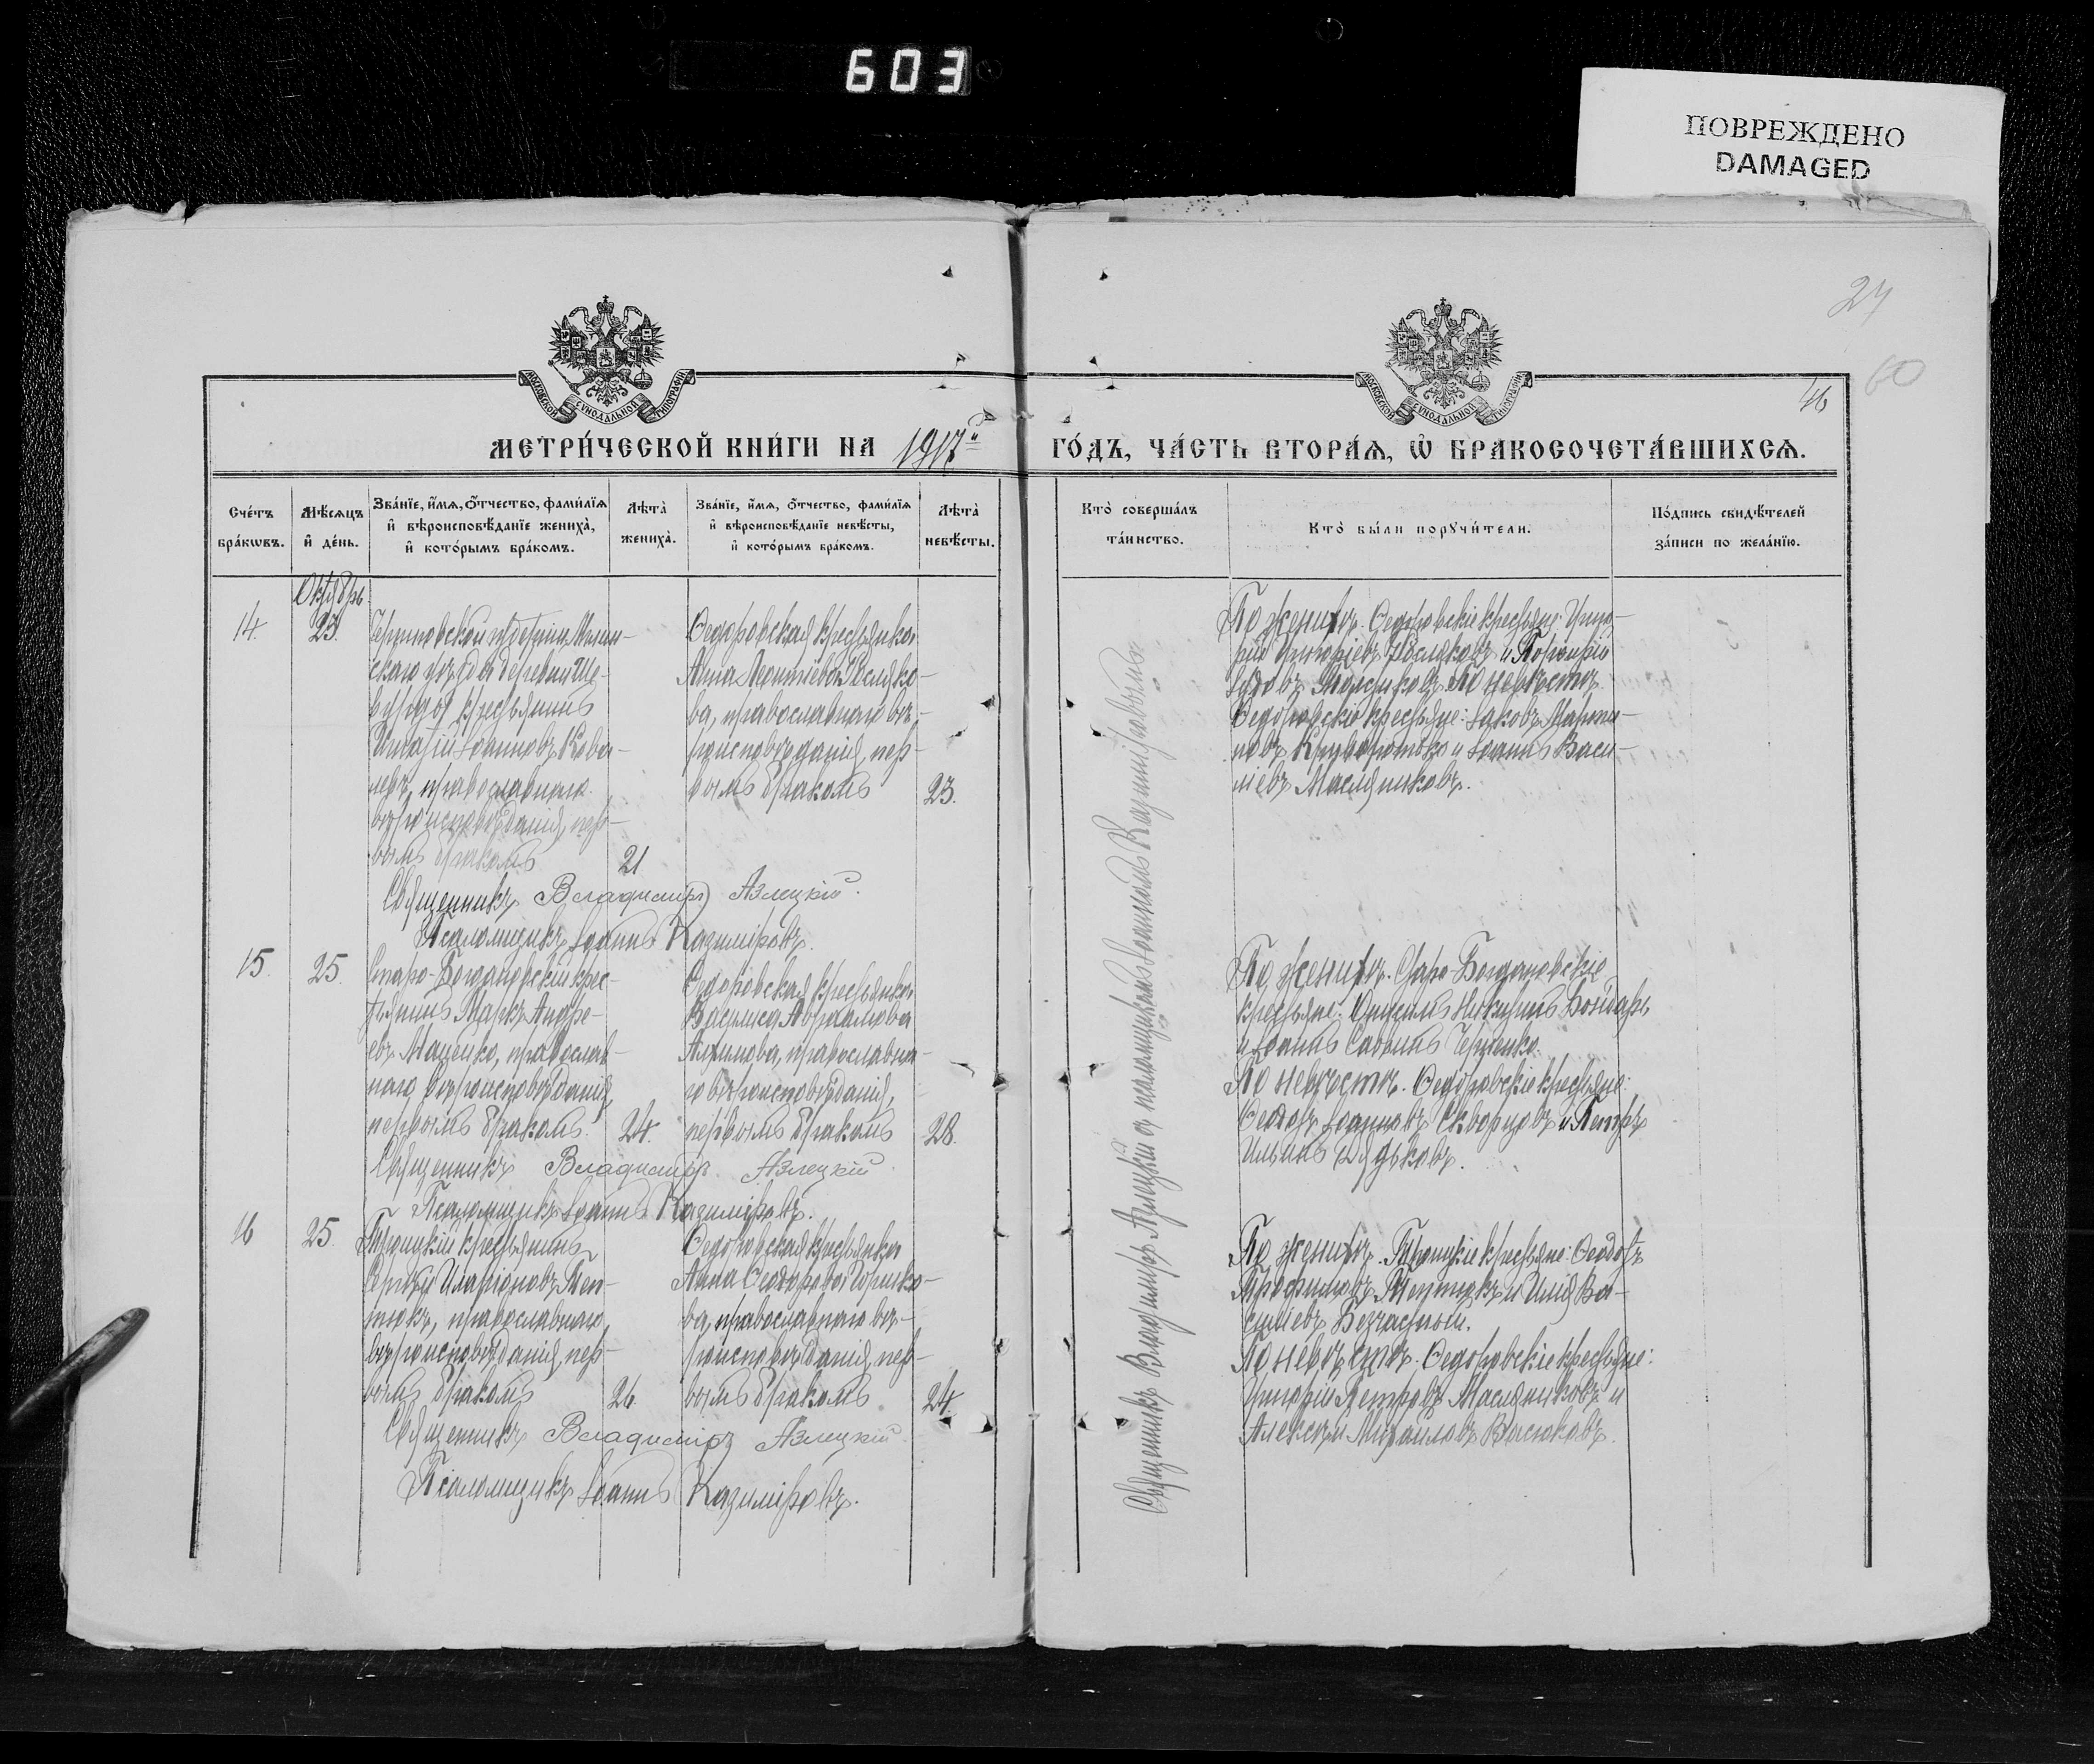 603
ПОВРЕЖДЕНО
DAMAGED
24
60
46
МОСКОВСКОЙ СѴНОДАЛЬНОЙ ТИПОГРАФІИ
МОСКОВСКОЙ СѴНОДАЛЬНОЙ ТИПОГРАФІИ
МЕТРИ́ЧЕСКОЙ КНИ́ГИ НА 1917й ГО́ДЪ, ЧА́СТЬ ВТОРА́Ѧ, Ѡ҆ БРАКОСОЧЕТА́ВШИХСѦ.
Сче́тъ бра́кѡвъ.
Мѣ́сѧцъ и҆ де́нь.
Зва́нїе, и҆́мѧ, ѻ҆́тчество, фами́лїѧ
и҆ вѣроисповѣ́данїе жениха̀,
и҆ кото́рымъ бра́комъ.
Лѣта̀ жениха̀.
Зва́нїе, и҆́мѧ, ѻ҆́тчество, фами́лїѧ
и҆ вѣроисповѣ́данїе невѣ́сты,
и҆ кото́рымъ бра́комъ.
Лѣта̀ невѣ́сты.
Кто̀ соверша́лъ
та́инство.
Кто̀ бы́ли порꙋчи́тели.
По́дпись свидѣ́телей
за́писи по жела́нїю.
Октябрь
14.
23.
скаго уѣзда деревни
крестьянинъ
Игнатій Іоанновъ Кова-
левъ, православнаго
вѣроисповѣданія, пер-
вымъ бракомъ
21
Ѳедоровская крестьянка
Анна Леонтіева Росляко-
ва, православнаго вѣ-
роисповѣданія, пер-
вымъ бракомъ
23.
По женихѣ. Ѳедоровскіе крестьяне: Григо-
рій Григоріевъ Росляковъ и Порфирій
По невѣстѣ.
Ѳедоровскіе крестьяне: Іаковъ Марти-
новъ и Іоаннъ Васи-
ліевъ Масляниковъ.
Священникъ Владиміръ Азлецкій.
Псаломщикъ Іоаннъ Казиміровъ.
15.
25.
Старо-Богдановскій крес-
тьянинъ Маркъ Андре-
евъ Маценко, православ-
наго вѣроисповѣданія,
первымъ бракомъ.
24.
Ѳедоровская крестьянка
Василиса Абрамова
Алфимова, православна-
го вѣроисповѣданія,
первымъ бракомъ
28.
По женихѣ. Старо-Богдановскіе
крестьяне: Никитинъ Бондарь
и Іоаннъ Саввинъ
По невѣстѣ. Ѳедоровскіе крестьяне:
Ѳеодоръ Іоанновъ Скворцовъ и Петръ
Ильинъ Дядьковъ.
Священникъ Владиміръ Азлецкій
Псаломщикъ Іоаннъ Казиміровъ.
16
25.
Троицкій крестьянинъ
Сергѣй Иларіоновъ Теп-
тюкъ, православнаго
вѣроисповѣданія, пер-
вымъ бракомъ
26.
Ѳедоровская крестьянка
Анна Ѳеодорова Горшко-
ва, православнаго вѣ-
роисповѣданія, пер-
вымъ бракомъ
24.
По женихѣ. Троицкіе крестьяне: Ѳеодотъ
Трофимовъ Тептюкъ и Илія Ва-
силіевъ Безчасный.
По невѣстѣ. Ѳедоровскіе крестьяне:
Григорій Петровъ Масляниковъ и
Алексѣй Михаиловъ Васюковъ.
Священникъ Владиміръ Азлецкій
Псаломщикъ Іоаннъ Казиміровъ.
Священникъ Владиміръ Азлецкій съ псаломщикомъ Іоанномъ Казиміровымъ.